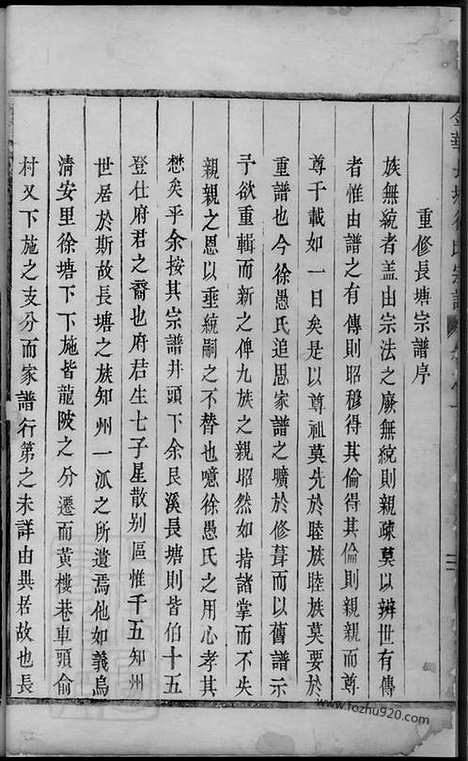 重修長塘宗譜序
族無統者盖由宗法之廢無統則親疎莫以辨世有傳
者惟由譜之有傳則昭穆得其倫得其倫則親親而尊
尊于載如一日矣是以尊祖莫先於睦族睦族莫要於
重譜也今徐愚氏追思家譜之曠於修葺而以舊譜示
予欲重輯而新之俾九族之親昭然如指諸掌而不失
親親之恩以垂統嗣之不替也噫徐愚氏之用心孝其
懋矣乎余按其宗譜井頭下余良溪長塘則皆伯十五
登仕府君之裔也府君生七子星散别區惟千五知州
世居於斯故長塘之族知州一派之所遺焉他如義烏
清安里徐塘下下施皆龍陂之分遷而黄樓巷車頭俞
村又下施之支分而家譜行第之未詳由異居故也長
金華長塘徐氏宗譜
www.fozhu920.com